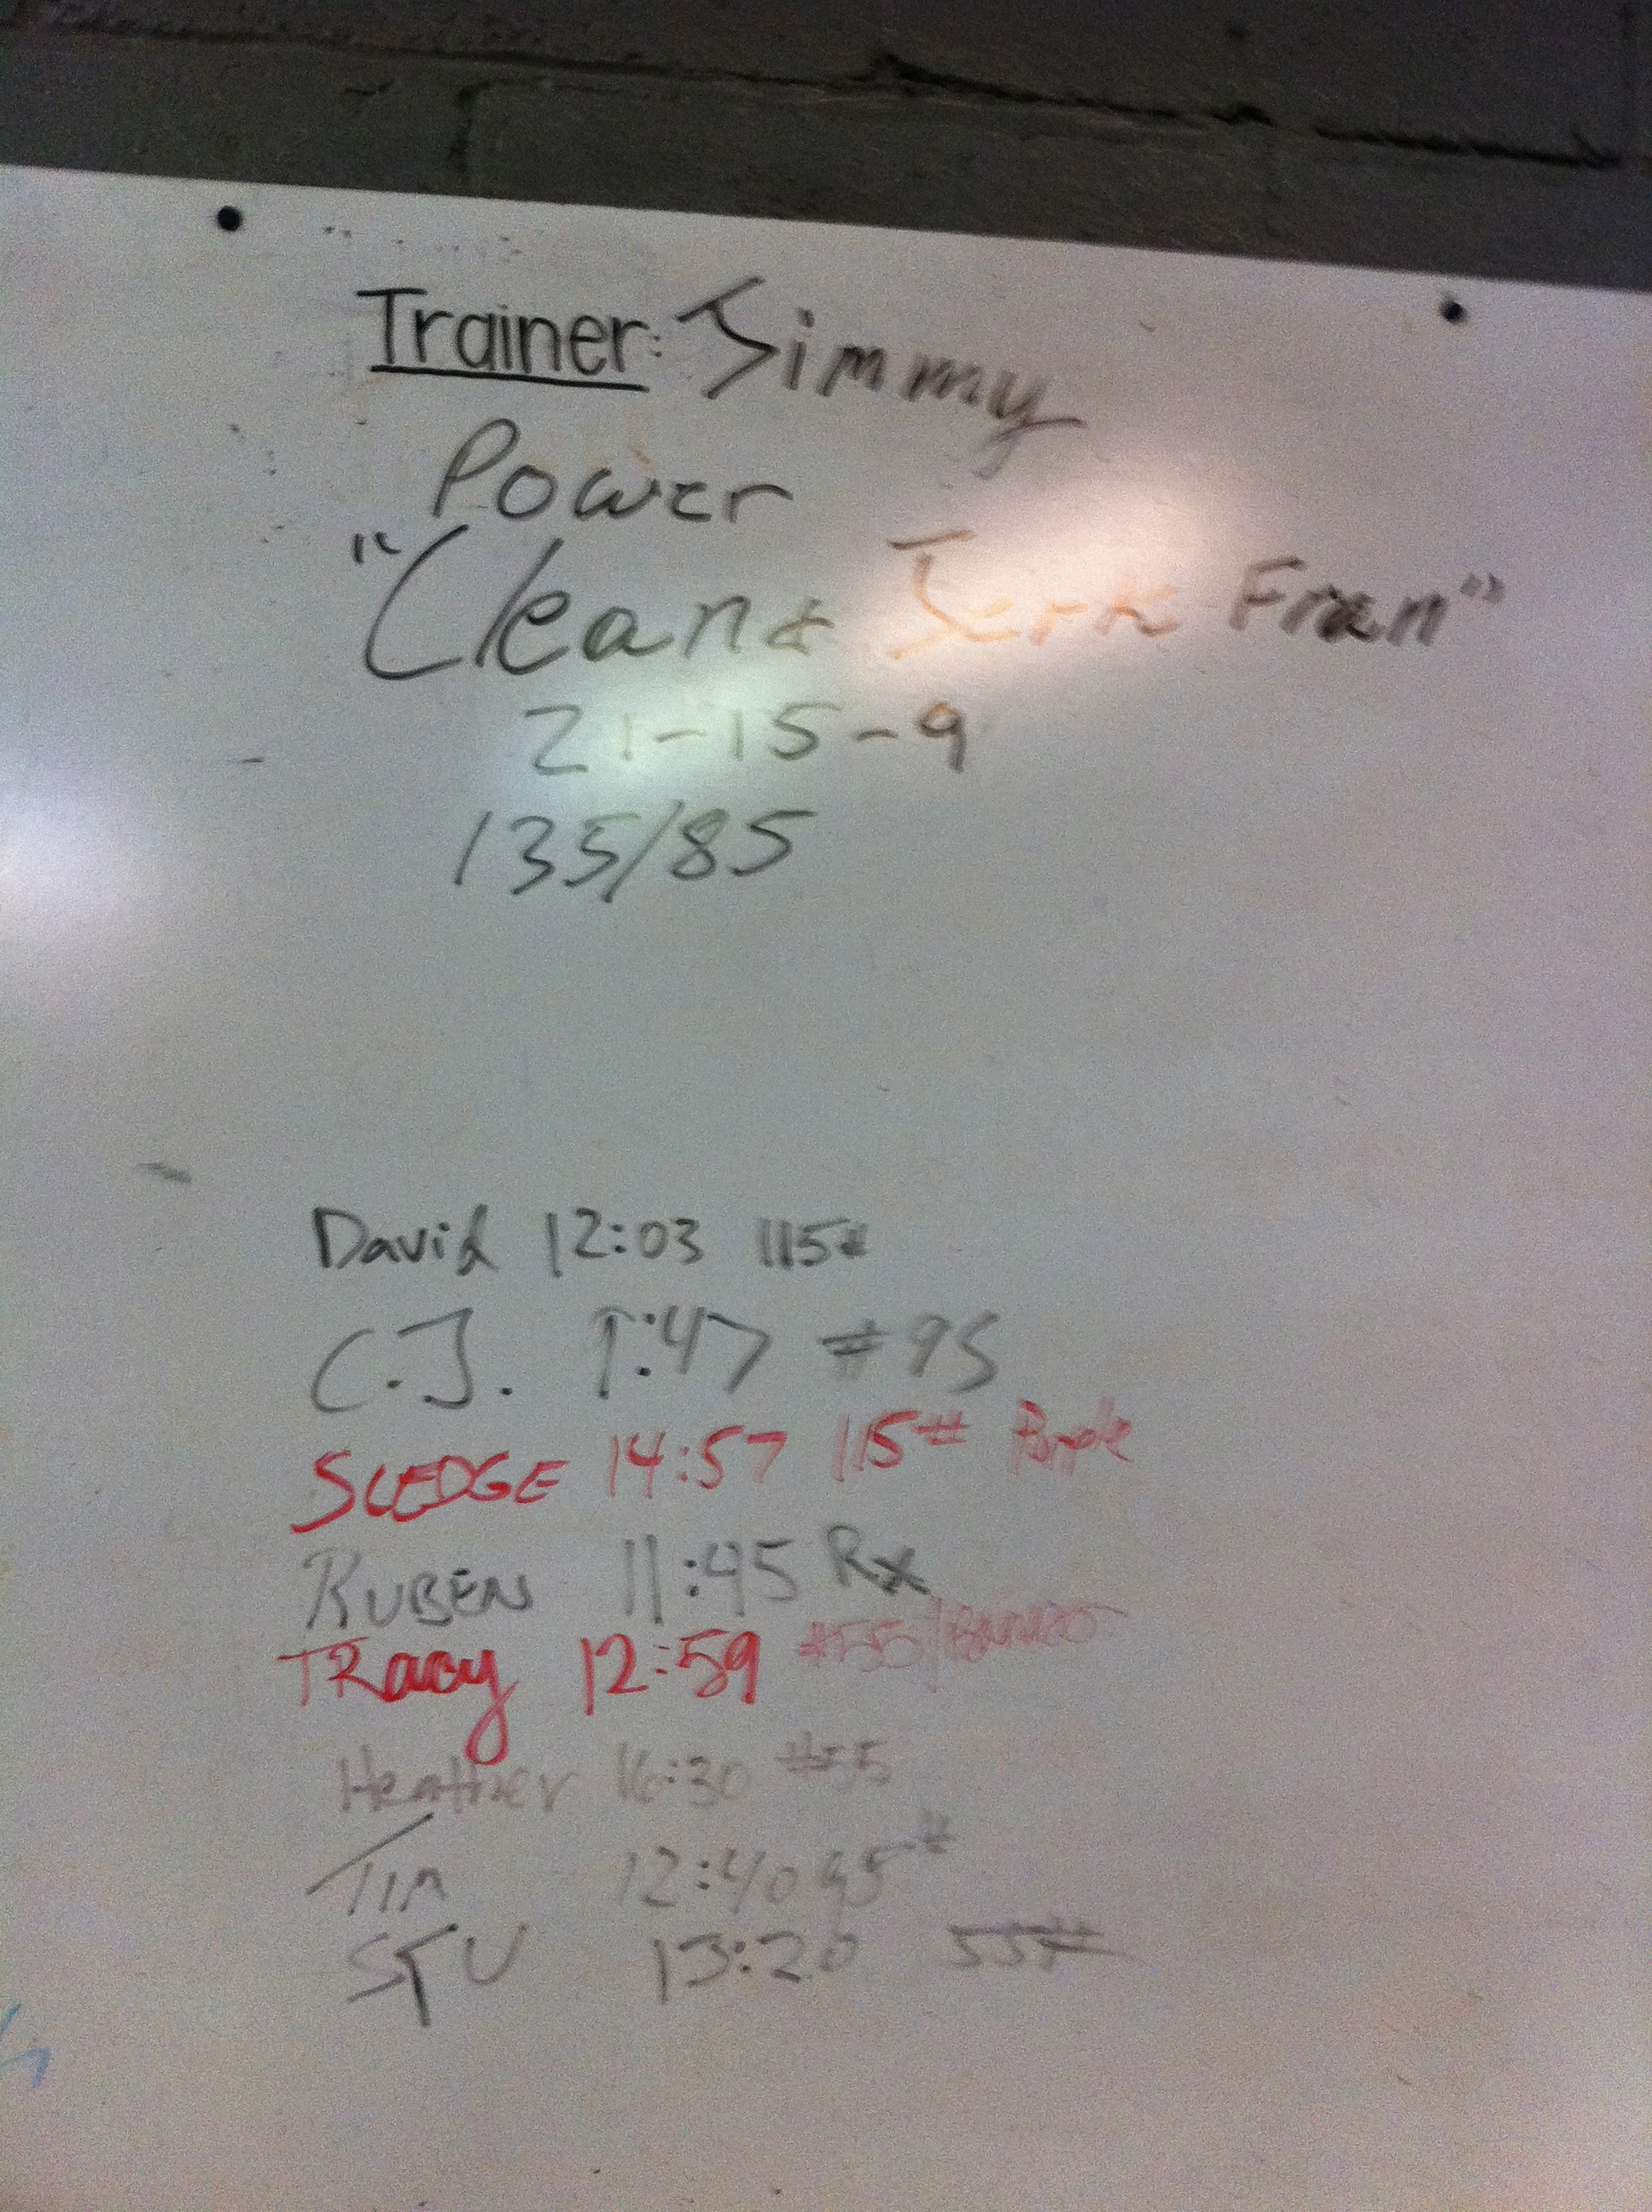 Trainer: Jimmy
Power
"Clean & Jerk Fran"
21-15-9
135/85
David 12:03 115#
C.J. 9:47 #95
SLEDGE 14:57 115# Purple
RUBEN 11:45 Rx
TRacy 12:59 #55
Heather 16:30 #55
Tim 12:40 95#
STU 13:20 55#